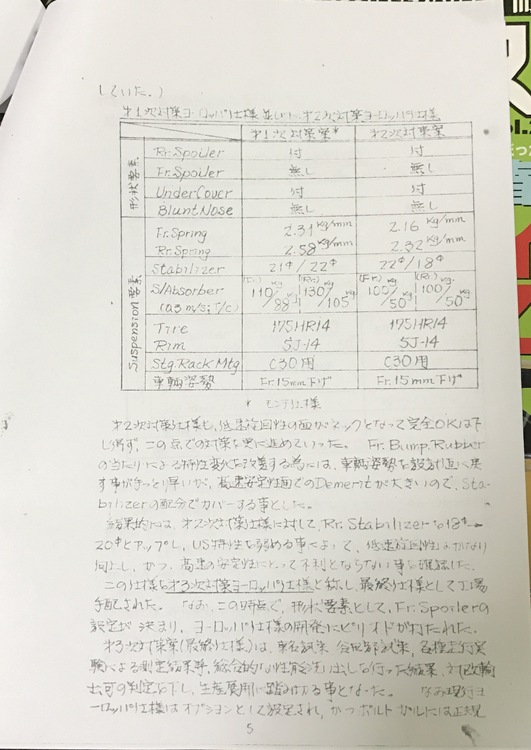 していた。)
オ1次対策ヨーロッパ仕様並びにオ2次対策ヨーロッパ仕様
オ1次対策案* オ2次対策案
形状要素
Rr.Spoiler 付 付
Fr.Spoiler 無し 無し
UnderCover 付 付
BluntNose 無し 無し
Suspension要素
Fr.Spring 2.31 kg/mm 2.16 kg/mm
Rr.Spring 2.58 kg/mm 2.32 kg/mm
Stabilizer 21φ/22φ 22φ/18φ
S/Absorber (Fr) 110/88 kg (Rr) 130/105 kg (Fr) 100/50 kg (Rr) 100/50 kg
(0.3 m/s; T/C)
Tire 175HR14 175HR14
Rim 5J-14 5J-14
Stg.Rack Mtg C30用 C30用
車輌姿勢 Fr.15mm下げ Fr.15mm下げ
* モンテ仕様
オ2次対策仕様も、低速旋回性の面がネックとなって完全OKは下
し得ず、この点での対策を更に進めていった。 Fr.Bump.Rubber
の当たりによる特性変化を改善する為には、車輌姿勢を設計値に戻
す事が手っとり早いが、高速安定性面でのDemeritが大きいので、Sta-
bilizerの配分でカバーする事とした。
結果的には、オ2次対策仕様に対して、Rr.Stabilizerを18φ→
20φとアップし、US特性を弱める事によって、低速旋回性もかなり
向上し、かつ、高速の安定性にとって不利とならない事を確認した。
この仕様をオ3次対策ヨーロッパ仕様と称し、最終仕様として工場
手配された。 なお、この時点で、形状要素として、Fr.Spoilerの
設定が決まり、ヨーロッパ仕様の開発にピリオドが打たれた。
オ3次対策案(最終仕様)は、 各種走行実
験による測定結果等、総合的な性能洗い出しを行った結果、対欧輸
出可の判定を下し、生産 に踏みきる事となった。 なお現行ヨ
ーロッパ仕様はオプションとして設定され、かつポルトガルには正規
5